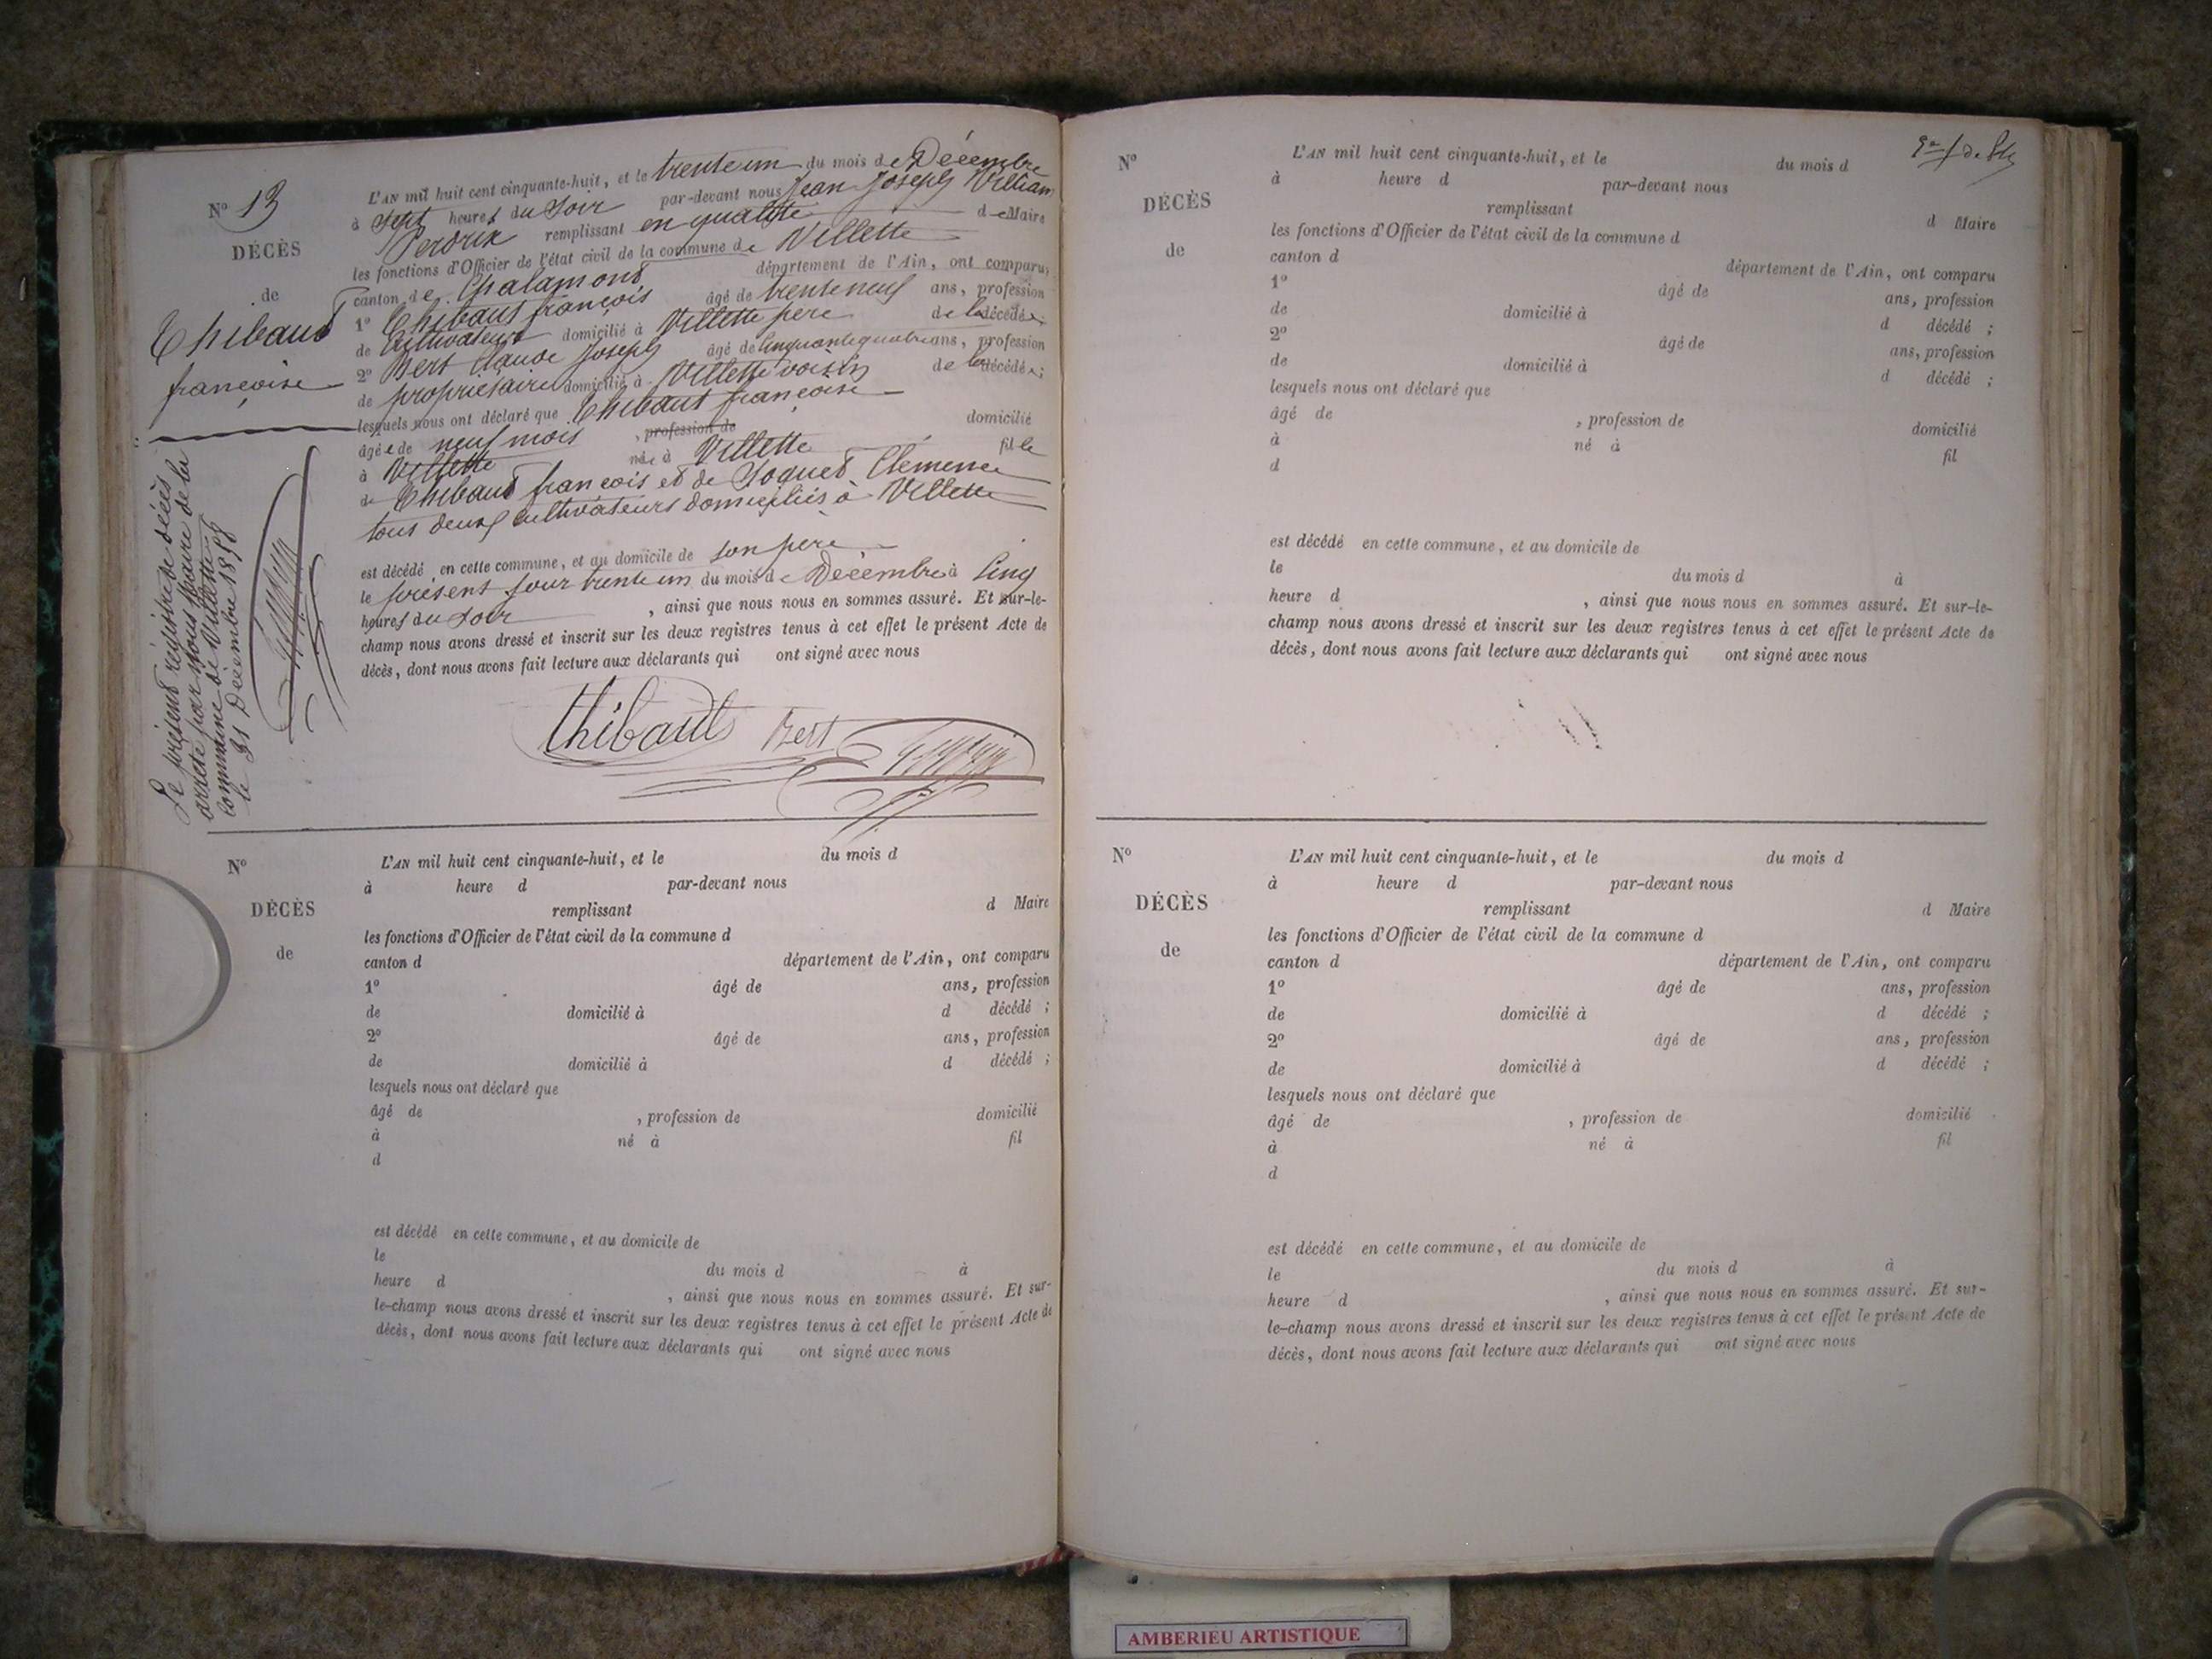 N° 13
DÉCÈS
de
Thibaud
françoise
L'AN mil huit cent cinquante-huit, et le trente un du mois de Décembre
à sept heures du soir par-devant nous Jean Joseph William
Perdrix remplissant en qualité de Maire
les fonctions d'Officier de l'état civil de la commune de Villette
canton de Chalamont département de l'Ain, ont comparu
1° Thibaut françois âgé de trente neuf ans, profession
de Cultivateur domicilié à Villette père de la décédée;
2° Bert Claude Joseph âgé de cinquante quatre ans, profession
de propriétaire domicilié à Villette voisin de la décédée;
lesquels nous ont déclaré que Thibaut françoise
âgée de neuf mois , profession de domicilié
à Villette née à Villette fille
de Thibaud françois et de Joques Clemence
tous deux cultivateurs domiciliés à Villette
est décédé en cette commune, et au domicile de son père
le présent jour trente un du mois de Décembre à Cinq
heures du soir , ainsi que nous nous en sommes assuré. Et sur-le-
champ nous avons dressé et inscrit sur les deux registres tenus à cet effet le présent Acte de
décès, dont nous avons fait lecture aux déclarants qui ont signé avec nous
Thibaut Bert
Le présent régistre de décès
arrêté par nous Maire de la
commune de Villette
le 31 Décembre 1858
N°
DÉCÈS
de
L'AN mil huit cent cinquante-huit, et le du mois d
à heure d par-devant nous
remplissant d Maire
les fonctions d'Officier de l'état civil de la commune d
canton d département de l'Ain, ont comparu
1° âgé de ans, profession
de domicilié à d décédé ;
2° âgé de ans, profession
de domicilié à d décédé ;
lesquels nous ont déclaré que
âgé de , profession de domicilié
à né à fil
d
est décédé en cette commune, et au domicile de
le du mois d à
heure d , ainsi que nous nous en sommes assuré. Et sur-
le-champ nous avons dressé et inscrit sur les deux registres tenus à cet effet le présent Acte de
décès, dont nous avons fait lecture aux déclarants qui ont signé avec nous
N°
DÉCÈS
de
L'AN mil huit cent cinquante-huit, et le du mois d
à heure d par-devant nous
remplissant d Maire
les fonctions d'Officier de l'état civil de la commune d
canton d département de l'Ain, ont comparu
1° âgé de ans, profession
de domicilié à d décédé ;
2° âgé de ans, profession
de domicilié à d décédé ;
lesquels nous ont déclaré que
âgé de , profession de domicilié
à né à fil
d
est décédé en cette commune, et au domicile de
le du mois d à
heure d , ainsi que nous nous en sommes assuré. Et sur-le-
champ nous avons dressé et inscrit sur les deux registres tenus à cet effet le présent Acte de
décès, dont nous avons fait lecture aux déclarants qui ont signé avec nous
N°
DÉCÈS
de
L'AN mil huit cent cinquante-huit, et le du mois d
à heure d par-devant nous
remplissant d Maire
les fonctions d'Officier de l'état civil de la commune d
canton d département de l'Ain, ont comparu
1° âgé de ans, profession
de domicilié à d décédé ;
2° âgé de ans, profession
de domicilié à d décédé ;
lesquels nous ont déclaré que
âgé de , profession de domicilié
à né à fil
d
est décédé en cette commune, et au domicile de
le du mois d à
heure d , ainsi que nous nous en sommes assuré. Et sur-
le-champ nous avons dressé et inscrit sur les deux registres tenus à cet effet le présent Acte de
décès, dont nous avons fait lecture aux déclarants qui ont signé avec nous
AMBERIEU ARTISTIQUE